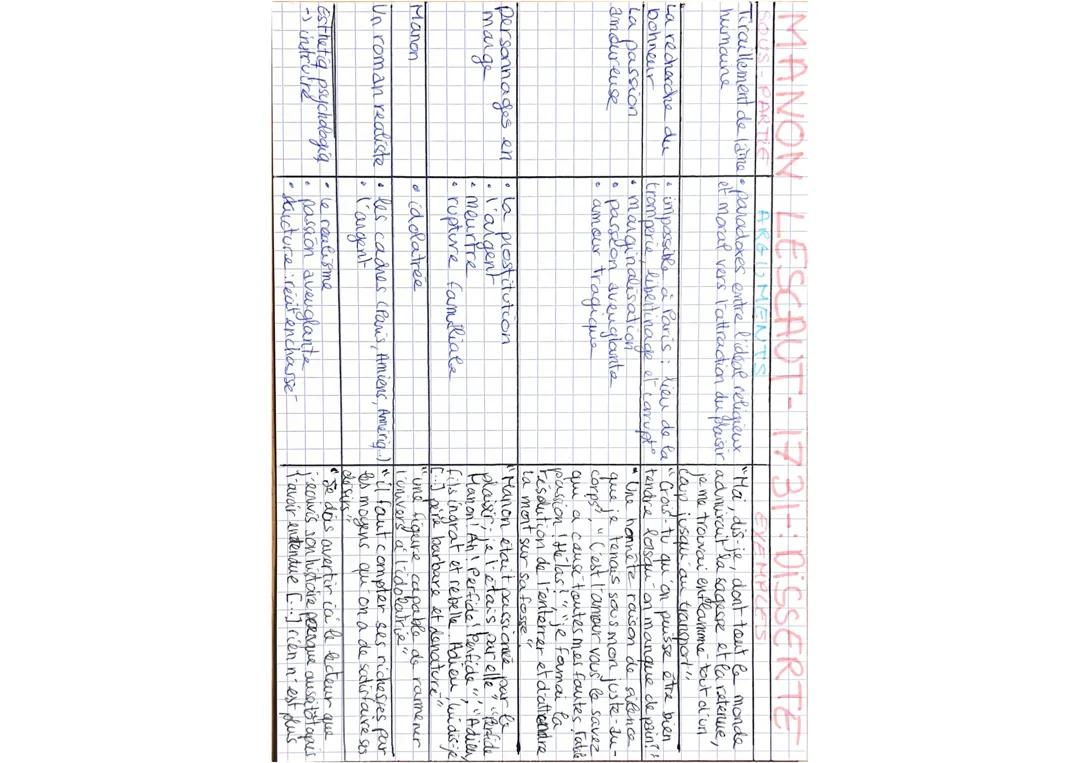 MANON LESCAUT - 1731 - : DISSERTE
SOUS-PARTIE
ARGUMENTS
EXEMPLES
Tiraillement de l'âme
humaine
• paradoxes entre l'idéal religieux
et moral vers l'attraction du plaisir
"Moi, dis-je, dont tout le monde
admirait la sagesse et la retenue,
je me trouvai enflammé tout d'un
coup jusqu'au transport"
La recherche du
bonheur
• impossible à Paris : lieu de la
tromperie, libertinage et corrupt°
"Crois-tu qu'on puisse être bien
tendre lorsqu'on manque de pain?"
La passion
amoureuse
• marginalisation
• passion aveuglante
• amour tragique
"Une honnête raison de
que je tenais sous mon juste-au-
corps", "C'est l'amour vous le savez
qui a causé toutes mes fautes, fatale
passion ! Hélas !" "je formai la
résolution de l'enterrer et d'attendre
la mort sur sa fosse"
personnages en
marge
• la prostitution
• l'argent
• meurtre
• rupture familiale
"Manon était passionée par le
plaisir ; je l'étais par elle" "Perfide
Manon ! Ah ! Perfide ! Perfide" "Adieu,
fils ingrat et rebelle Adieu, lui dis-je
[...] père barbare et dénaturé"
Manon
• idolatrée
"une figure capable de ramener
l'univers à l'idolatrie"
Un roman realiste
• les cadres (Paris, Amiens, Amériq..)
• l'argent
"il faut compter ses richesses par
les moyens qu'on a de satisfaire ses
désirs"
Esthétiq psychologiq
-> instruire
• le réalisme
• passion aveuglante
• structure : récit enchassé
"Je dois avertir ici le lecteur que
j'écrivis son histoire presque aussitôt après
l'avoir entendue [...] rien n'est plus